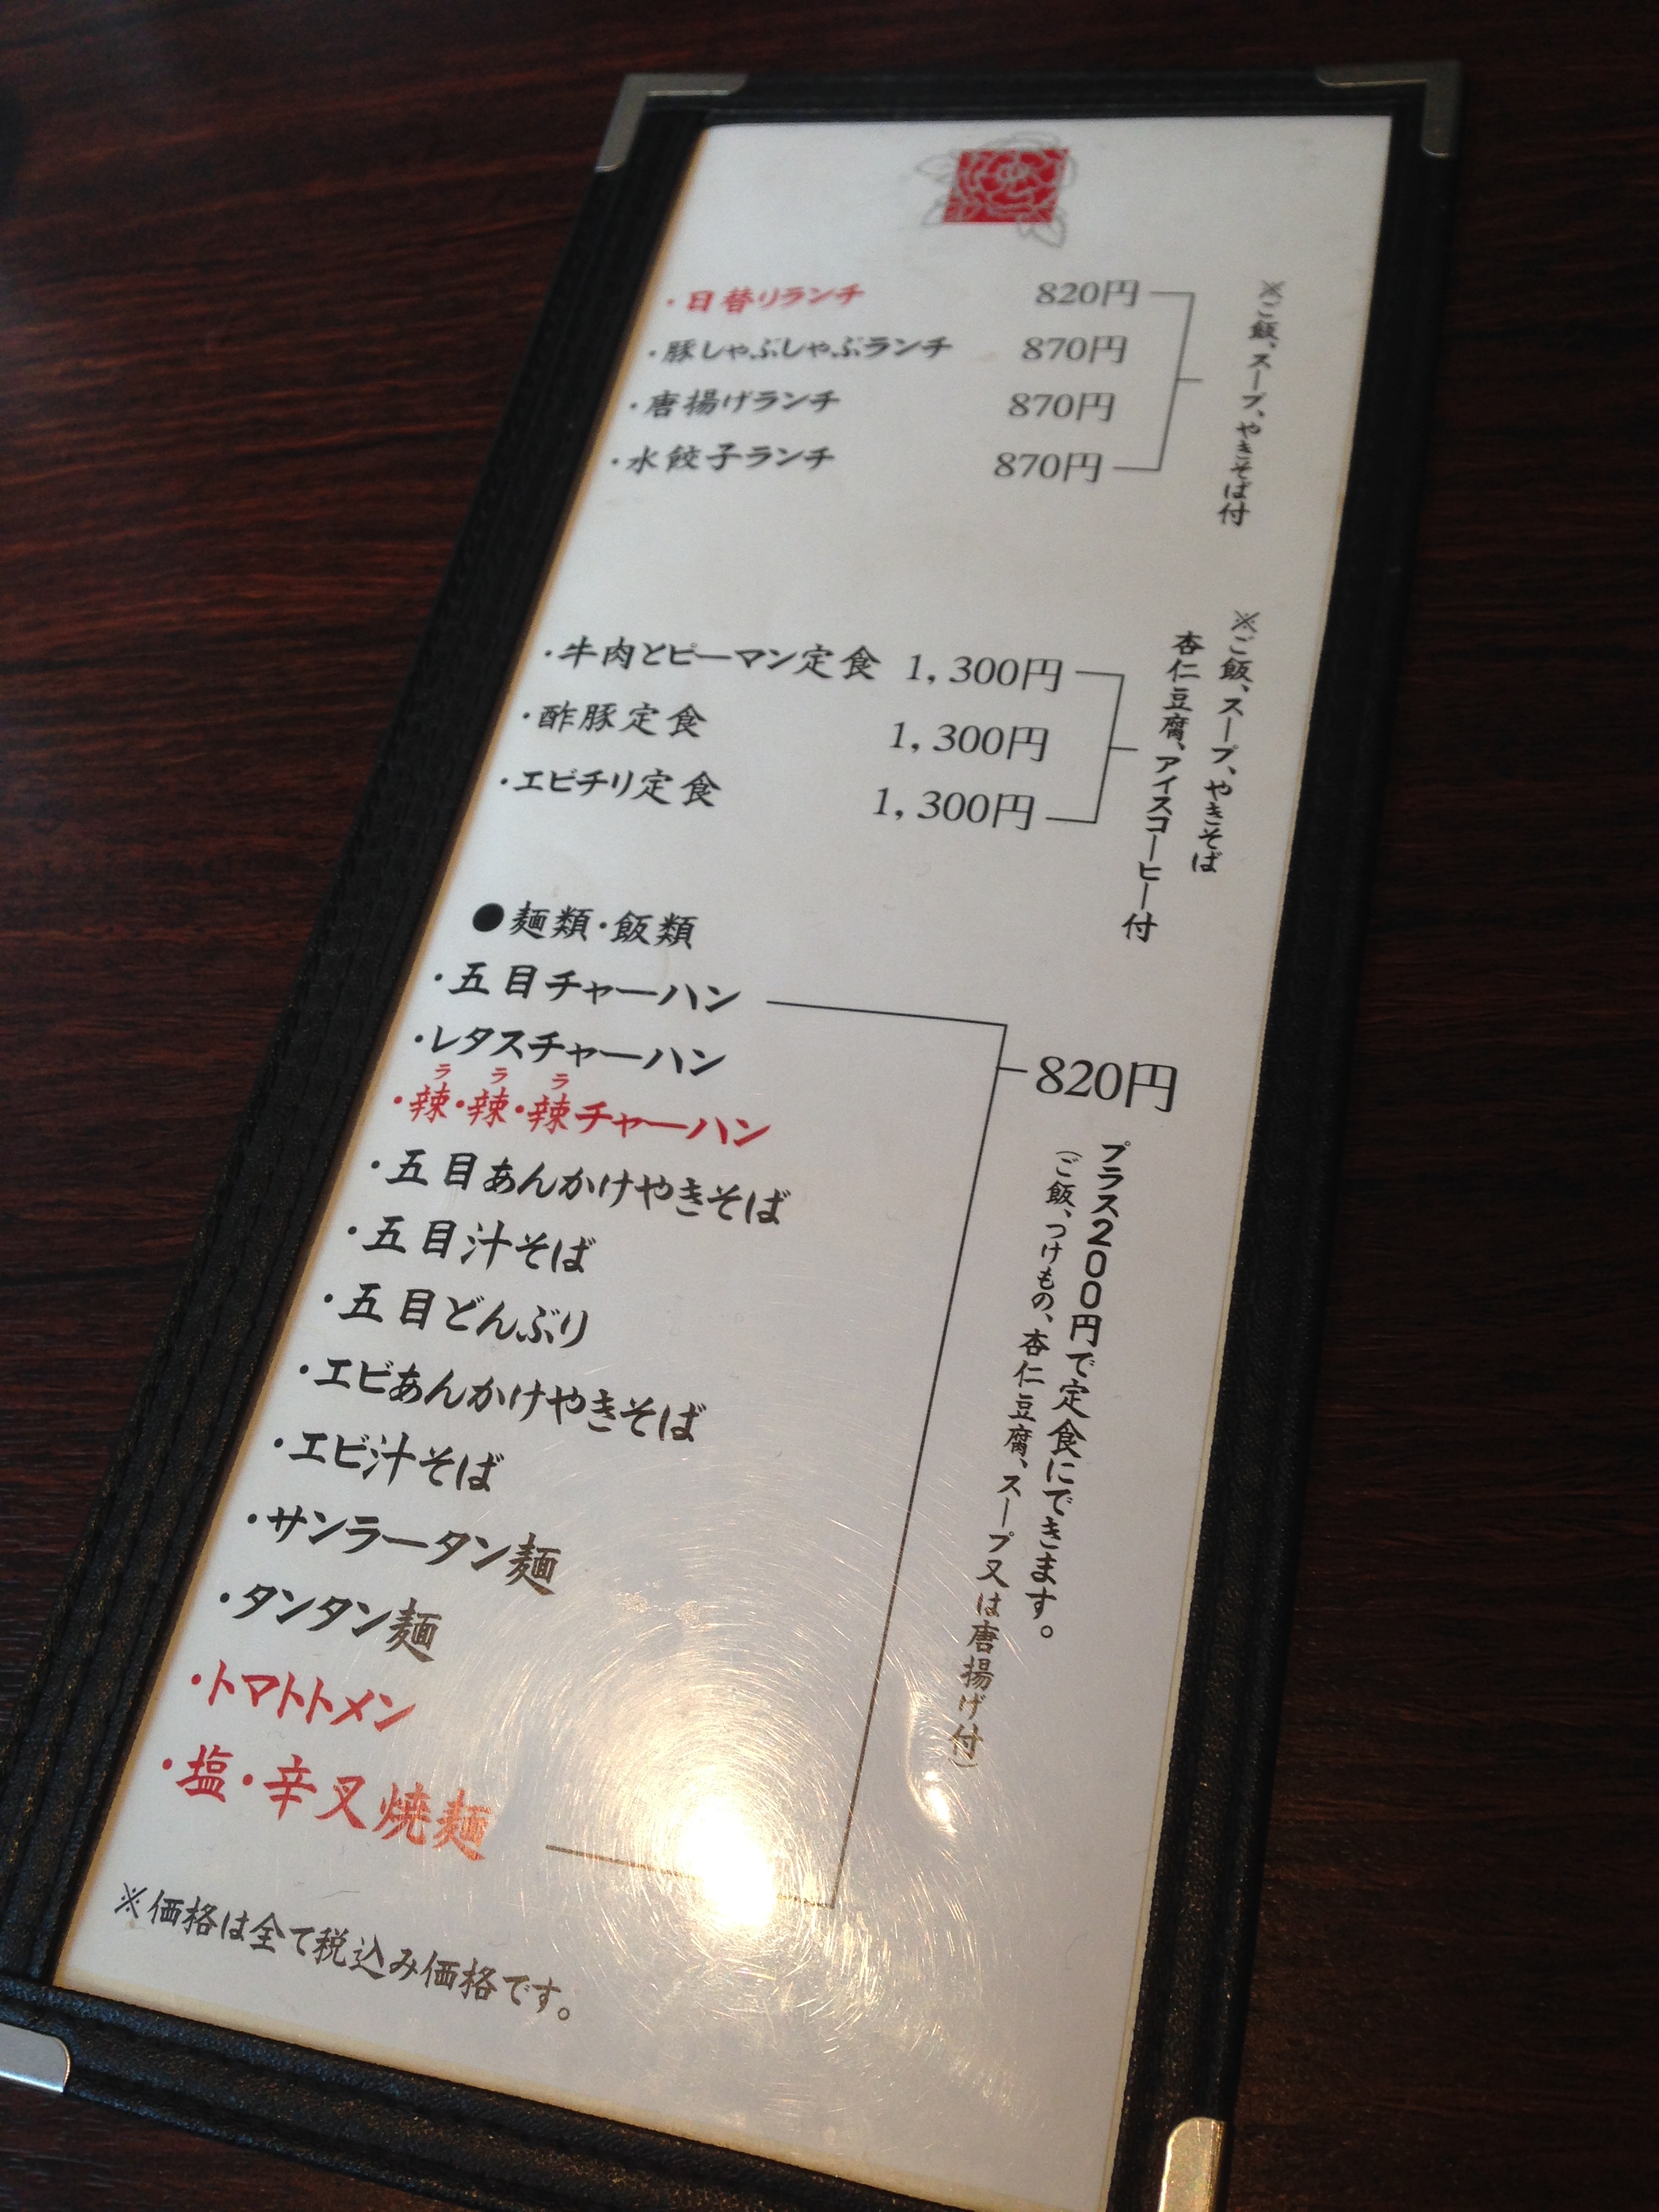 ・日替りランチ 820円
・豚しゃぶしゃぶランチ 870円
・唐揚げランチ 870円
・水餃子ランチ 870円
※ご飯、スープ、やきそば付
・牛肉とピーマン定食 1,300円
・酢豚定食 1,300円
・エビチリ定食 1,300円
※ご飯、スープ、やきそば
杏仁豆腐、アイスコーヒー付
●麺類・飯類
・五目チャーハン
・レタスチャーハン
ラ ラ ラ
・辣・辣・辣チャーハン
・五目あんかけやきそば
・五目汁そば
・五目どんぶり
・エビあんかけやきそば
・エビ汁そば
・サンラータン麺
・タンタン麺
・トマトトメン
・塩・辛叉焼麺
820円
プラス200円で定食にできます。
（ご飯、つけもの、杏仁豆腐、スープ又は唐揚げ付）
※価格は全て税込み価格です。